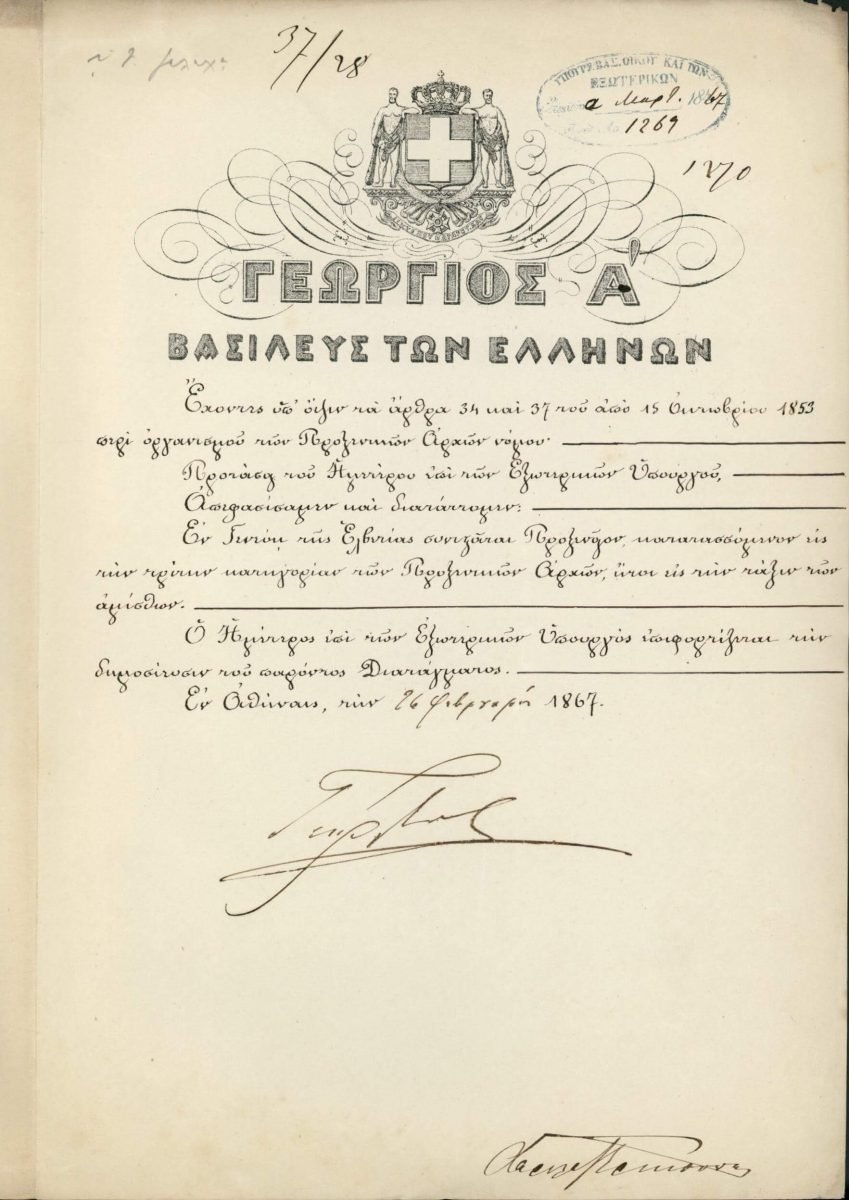 37/28
ΥΠΟΥΡΓ. ΒΑΣ. ΟΙΚΟΥ ΚΑΙ ΤΩΝ
ΕΞΩΤΕΡΙΚΩΝ
α Μαρτ. 1867
1269
1270
ΓΕΩΡΓΙΟΣ Α'
ΒΑΣΙΛΕΥΣ ΤΩΝ ΕΛΛΗΝΩΝ
Ἔχοντες ὑπ' ὄψιν τὰ ἄρθρα 34 καὶ 37 τοῦ ἀπὸ 15 Ὀκτωβρίου 1853
περὶ ὀργανισμοῦ τῶν Προξενικῶν Ἀρχῶν νόμου.
Προτάσει τοῦ Ἡμετέρου ἐπὶ τῶν Ἐξωτερικῶν Ὑπουργοῦ,
Ἀπεφασίσαμεν καὶ διατάττομεν:
Ἐν Γενεύῃ τῆς Ἑλβετίας συνιστᾶται Προξενεῖον, κατατασσόμενον εἰς
τὴν τρίτην κατηγορίαν τῶν Προξενικῶν Ἀρχῶν, ἤτοι εἰς τὴν τάξιν τῶν
ἀμίσθων.
Ὁ Ἡμέτερος ἐπὶ τῶν Ἐξωτερικῶν Ὑπουργὸς ἐπιφορτίζεται τὴν
δημοσίευσιν τοῦ παρόντος Διατάγματος.
Ἐν Ἀθήναις, τὴν 26 Φεβρουαρίου 1867.
Γεώργιος